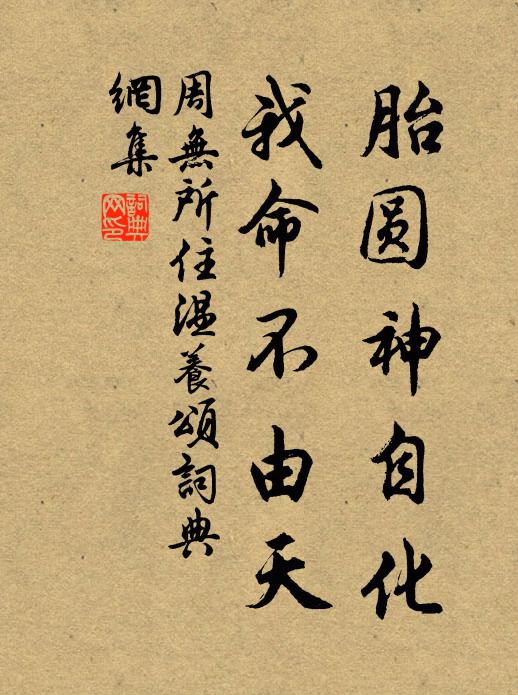 胎圆神自化
我命不由天
周無所住温養頌詞典
網集
詞典网印